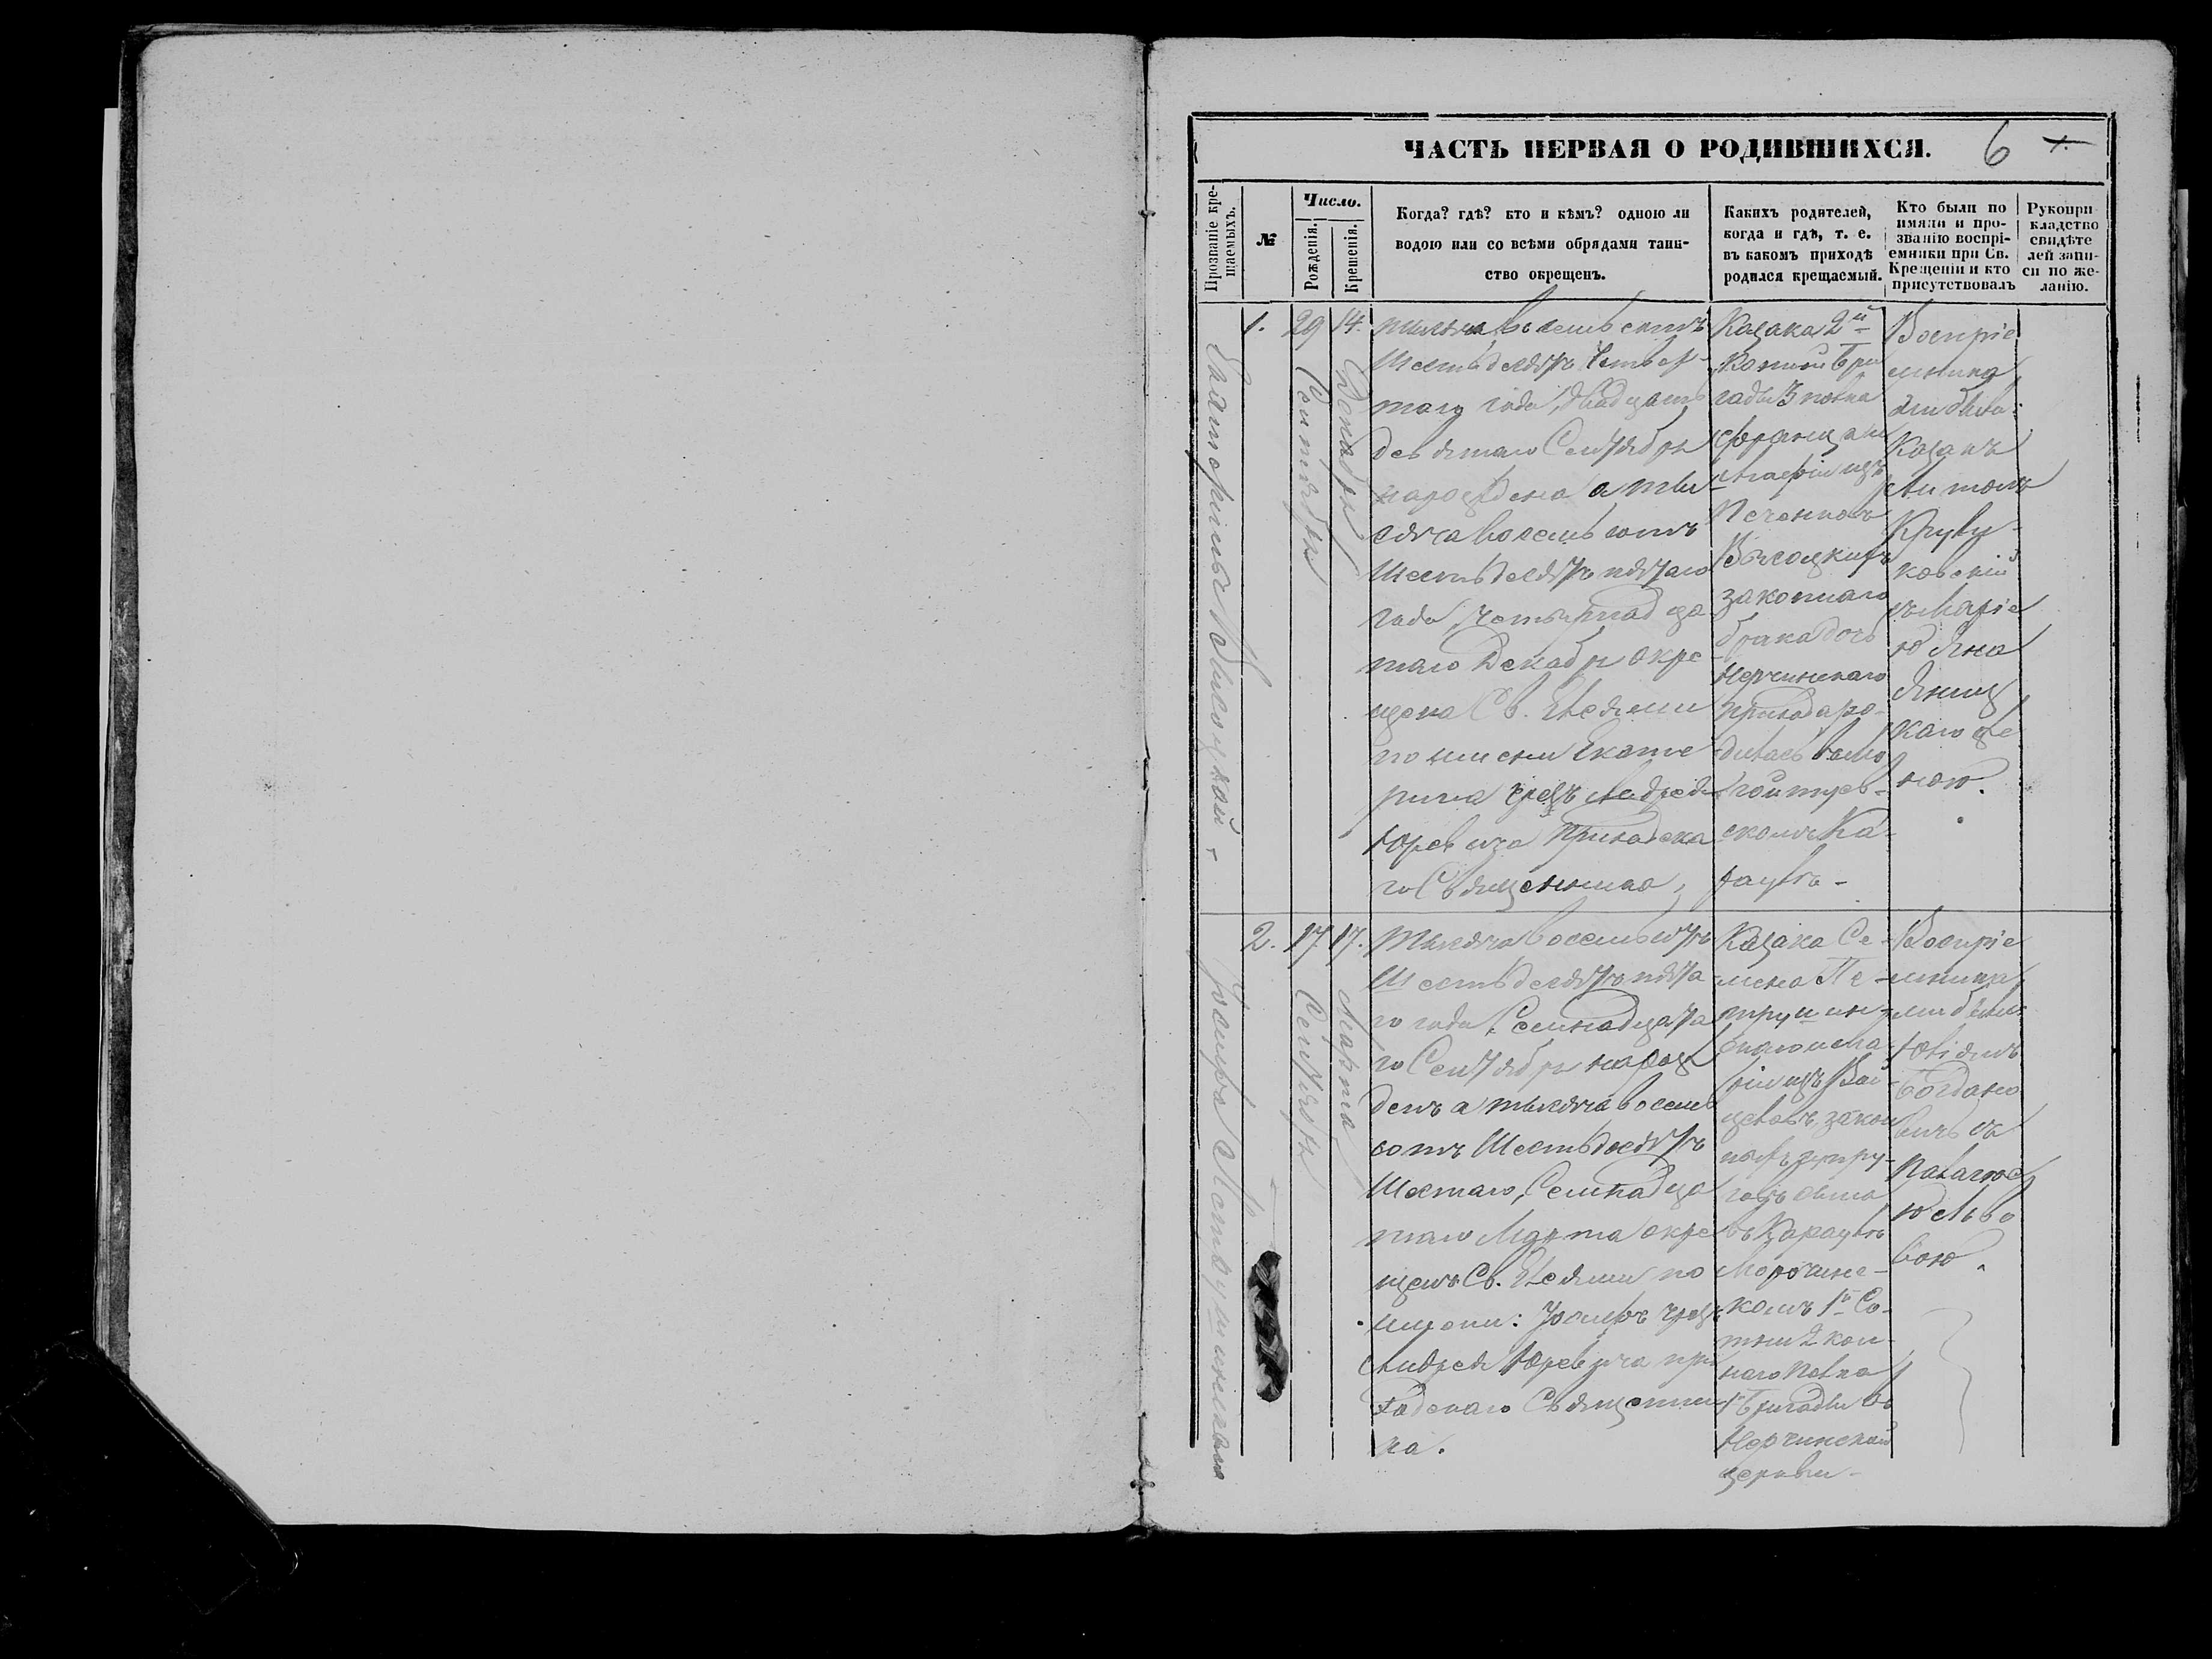 ЧАСТЬ ПЕРВАЯ О РОДИВШИХСЯ.
6
Прозваніе кре-
щаемыхъ.
№
Число.
Рожденія.
Крещенія.
Когда? гдѣ? кто и кѣмъ? одною ли
водою или со всѣми обрядами таин-
ство окрещенъ.
Какихъ родителей,
когда и гдѣ, т. е.
въ какомъ приходѣ
родился крещаемый.
Кто были по
имяни и про-
званію воспрі-
емники при Св.
Крещеніи и кто
присутствовалъ
Рукопри-
кладство
свидѣте
лей запи-
си по же-
ланію.
Екатерины Высоцкой
1.
29
Сентября
14.
Декабря
тысяча восемь сотъ
Шестьдесятъ Четвер-
таго года, двадцать
девятаго Сентября
нарождена а ты-
сяча восемь сотъ
Шестьдесятъ пятаго
года, четырнадца-
таго Декабря окре-
щена Св. Елеями
по имени Екате
рина чрезъ Андрея
Юревича Приходска
го Священника,
Казака 2й
Конной Бри
гады 3 полка
Франца и
Маріи изъ
Высоцкихъ
законнаго
брака дочь
Нерчинскаго
прихода ро-
дилась
скомъ Ка-
раулѣ -
Воспріе
мника
ми были:
Казакъ
Антонъ
Круви-
ковскій
съ Маріе
ю Яна
каго же
ною.
2.
17
Сентября
17.
Марта
Тысяча восемьсотъ
Шестьдесятъ пята
го года, Семнадцата
го Сентября нарож
денъ а тысяча восемь
сотъ Шестьдесятъ
Шестаго, Семнадца
таго Марта окре
щенъ Св. Елеями по
имени: Іосифъ чрезъ
Андрея Юревича при
ходскаго Священни
ка.
Казака Се-
мена Пе-
въ Караулѣ
комъ 1й Со-
тни 2 кон-
наго Полка
1 Бригады въ
Нерчинской
церкви -
Воспріе
мника
ми были:
Богдано
вичъ съ
Пелагіе
ю Льво
вою.